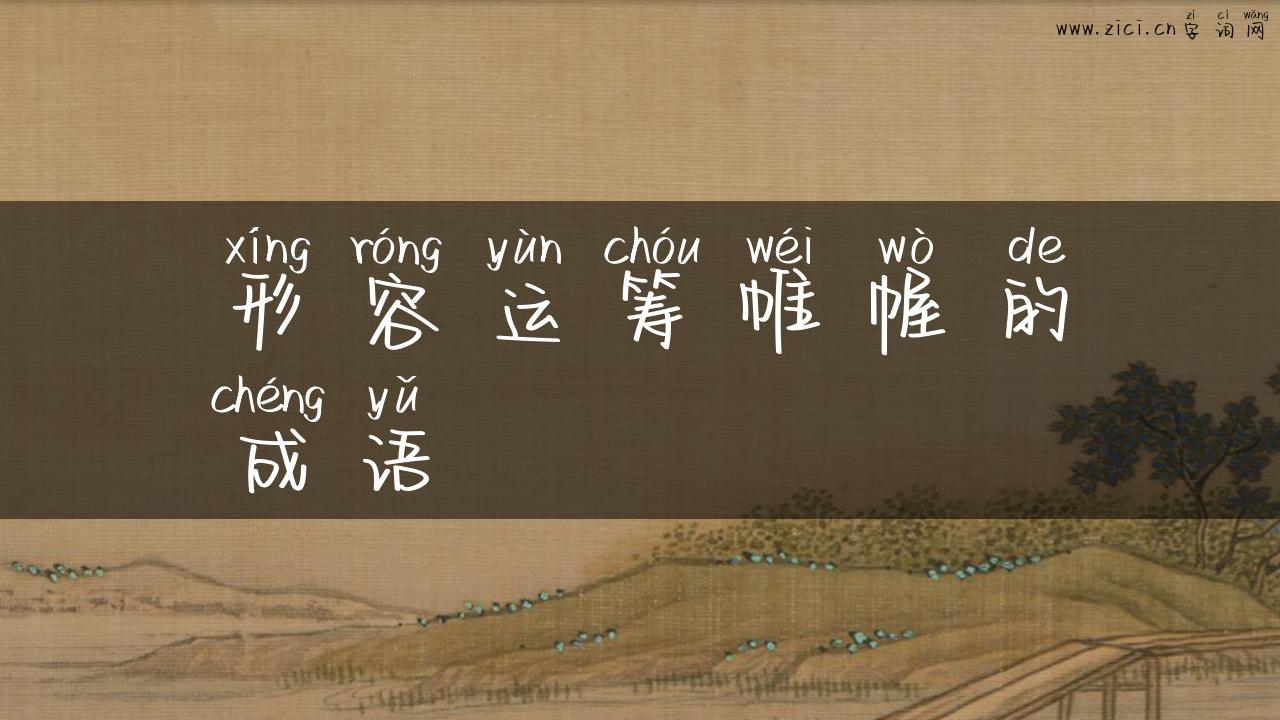 zì cí wǎng
www.zici.cn字词网
xíng róng yùn chóu wéi wò de
形容运筹帷幄的
chéng yǔ
成语